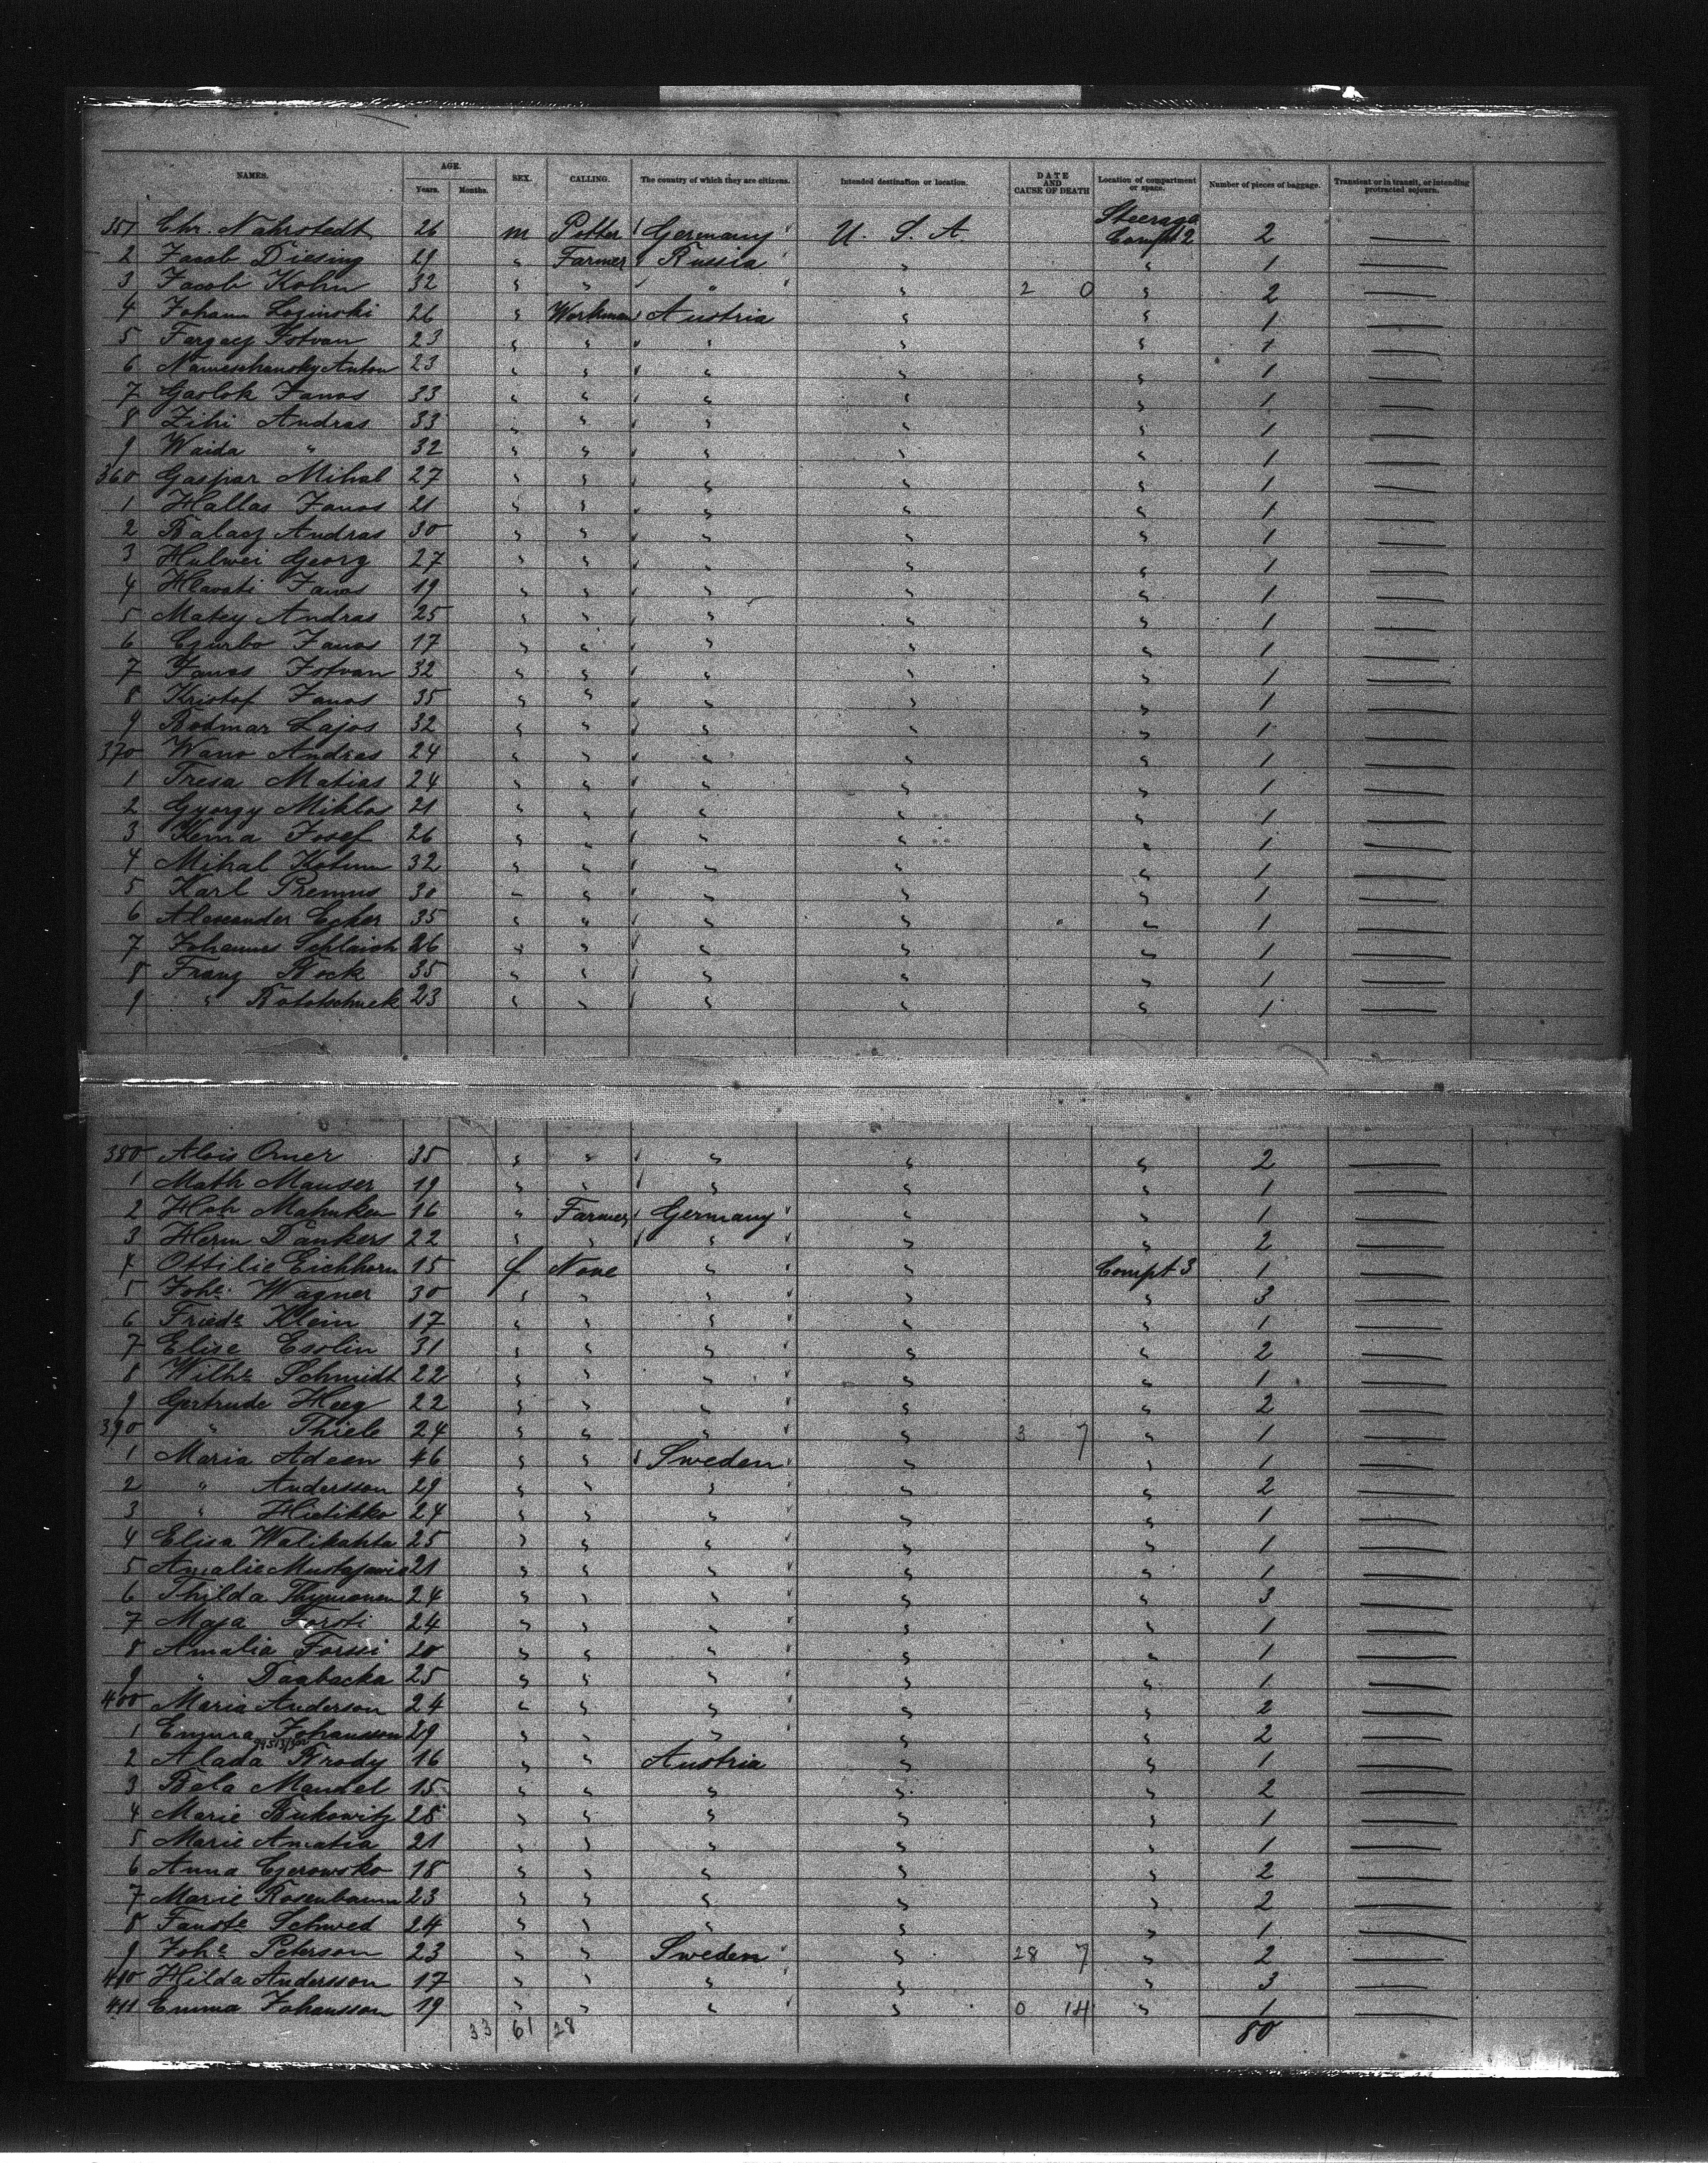 NAMES. AGE. Years. Months. SEX. CALLING. The country of which they are citizens. Intended destination or location. DATE AND CAUSE OF DEATH Location of compartment or space. Number of pieces of baggage. Transient or in transit, or intending protracted sojourn.
351 Chr. Nahrstedt 26 m Potter Germany U. S. A. Steerage Compt 2 2 —
2 Jacob Diesing 29 " Farmer Russia " " 1 —
3 Jacob Kohn 32 " " " " 2 0 " 2 —
4 Johann Lozinski 26 " Workman Austria " " 1 —
5 Istvan 23 " " " " " 1 —
6 Anton 23 " " " " " 1 —
7 Gaolok Janos 33 " " " " " 1 —
8 Zihi Andras 33 " " " " " 1 —
9 Waida " 32 " " " " " 1 —
360 Gaspar Mihal 27 " " " " " 1 —
1 Hallas Janos 21 " " " " " 1 —
2 Balacz Andras 30 " " " " " 1 —
3 Hulwei Georg 27 " " " " " 1 —
4 Hlavati Janos 19 " " " " " 1 —
5 Matey Andras 25 " " " " " 1 —
6 Czurbo Janos 17 " " " " " 1 —
7 Janos Istvan 32 " " " " " 1 —
8 Kristof Janos 35 " " " " " 1 —
9 Bodmar Lajos 32 " " " " " 1 —
370 Wano Andras 24 " " " " " 1 —
1 Tresa Matias 24 " " " " " 1 —
2 Gyorgy Miklos 21 " " " " " 1 —
3 Kema Josef 26 " " " " " 1 —
4 Mihal 32 " " " " " 1 —
5 Karl Premus 30 " " " " " 1 —
6 Alexander Ecker 35 " " " " " 1 —
7 Johannes Schlaich 26 " " " " " 1 —
8 Franz Bock 35 " " " " " 1 —
9 " 23 " " " " " 1 —
380 Alois Omer 35 " " " " " 2 —
1 Math Mauser 19 " " " " " 1 —
2 Hch Mahnken 16 " Farmer Germany " " 1 —
3 Herm Dankers 22 " " " " " 2 —
4 Ottilie Eichhorn 15 f None " " Compt 3 1 —
5 Johe. Wagner 30 " " " " " 3 —
6 Friede Klein 17 " " " " " 1 —
7 Elise Esslin 31 " " " " " 2 —
8 Wilhe Schmidt 22 " " " " " 1 —
9 Gertrude Heeg 22 " " " " " 2 —
390 " Thiele 24 " " " " 3 7 " 1 —
1 Maria Adeen 46 " " Sweden " " 1 —
2 " Andersson 29 " " " " " 2 —
3 " Hietikko 24 " " " " " 1 —
4 Elisa Walikahta 25 " " " " " 1 —
5 Amalie Mustajawi 21 " " " " " 1 —
6 Thilda Thymonen 24 " " " " " 3 —
7 Maja Forsti 24 " " " " " 1 —
8 Amalia Forssi 20 " " " " " 1 —
9 " Dagbacka 25 " " " " " 1 —
400 Maria Anderson 24 " " " " " 2 —
1 Emma Johansson 29 " " " " " 2 —
2 Alada Brody 16 " " Austria " " 1 —
3 Bela Mandel 15 " " " " " 2 —
4 Marie Bukowitz 28 " " " " " 1 —
5 Marie Amatia 21 " " " " " 1 —
6 Anna Czerowsko 18 " " " " " 2 —
7 Marie Rosenbaum 23 " " " " " 2 —
8 Fauste Schwed 24 " " " " " 1 —
9 Johe Peterson 23 " " Sweden " 28 7 " 2 —
410 Hilda Andersson 17 " " " " " 3 —
411 Emma Johansson 19 " " " " 0 14 " 1 —
33 61 28 80